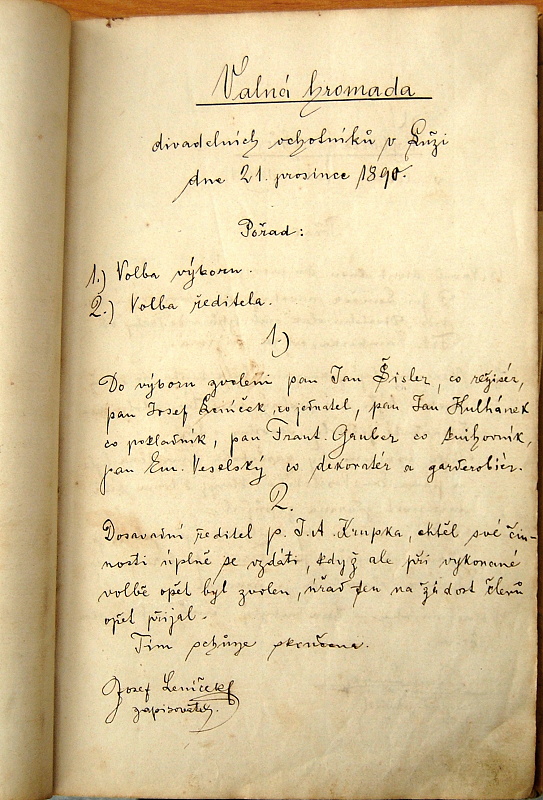 Valná hromada
divadelních ochotníků v Luži
dne 21. prosince 1890.
Pořad:
1.) Volba výboru.
2.) Volba ředitela.
1.)
Do výboru zvoleni pan Jan Šisler, co režisér,
pan Josef Leníček, co jednatel, pan Jan Kulhánek
co pokladník, pan Frant. Gruber co knihovník,
pan Em. Veselský co dekoratér a garderobiér.
2.
Dosavadní ředitel p. J. A. Krupka, chtěl své čin-
nosti úplně se vzdáti, když ale při vykonané
volbě opět byl zvolen, úřad ten na žádost členů
opět přijal.
Tím schůze skončena.
Josef Leníček
zapisovatel.